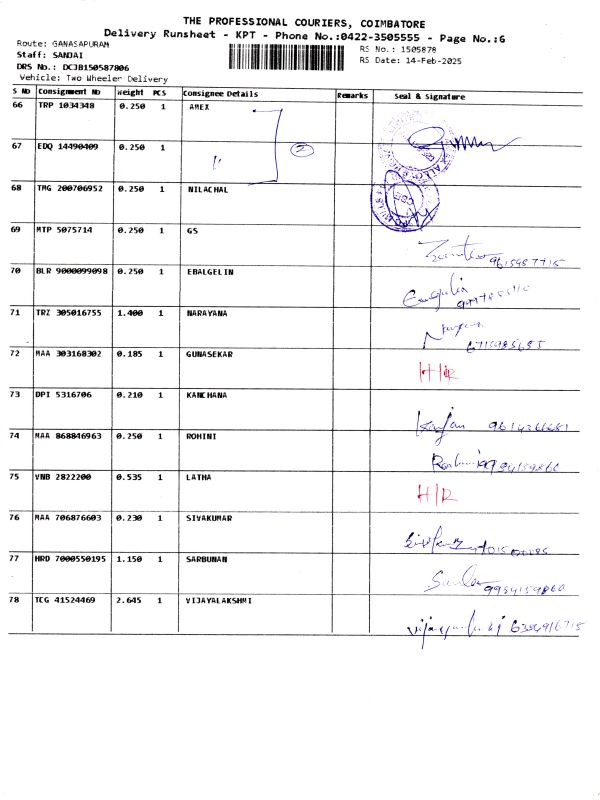 THE PROFESSIONAL COURIERS, COIMBATORE
Delivery Runsheet - KPT - Phone No.:0422-3505555 - Page No.:6
Route: GANASAPURAM
RS No.: 1505878
Staff: SANJAI
RS Date: 14-Feb-2025
DRS No.: DCJB150587806
Vehicle: Two Wheeler Delivery
S No Consignment No Weight PCS Consignee Details Remarks Seal & Signature
66 TRP 1034348 0.250 1 AMEX
67 EDQ 14490409 0.250 1 " 2
68 TMG 200706952 0.250 1 NILACHAL
69 MTP 5075714 0.250 1 GS
70 BLR 9000099098 0.250 1 EBALGELIN
71 TRZ 305016755 1.400 1 NARAYANA
72 MAA 303168302 0.185 1 GUNASEKAR H/R
73 DPI 5316706 0.210 1 KANCHANA
74 MAA 868846963 0.250 1 ROHINI
75 VNB 2822200 0.535 1 LATHA H/R
76 MAA 706876603 0.230 1 SIVAKUMAR
77 HRD 7000550195 1.150 1 SARBUNAN 9994159860
78 TCG 41524469 2.645 1 VIJAYALAKSHMI